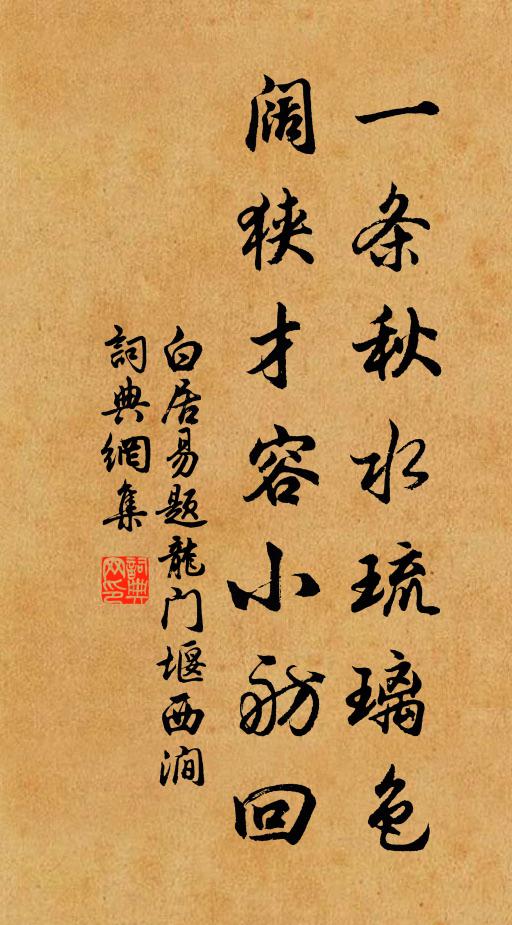 一条秋水琉璃色
阔狭才容小舫回
白居易题龍门堰西涧
詞典網集
詞典网印